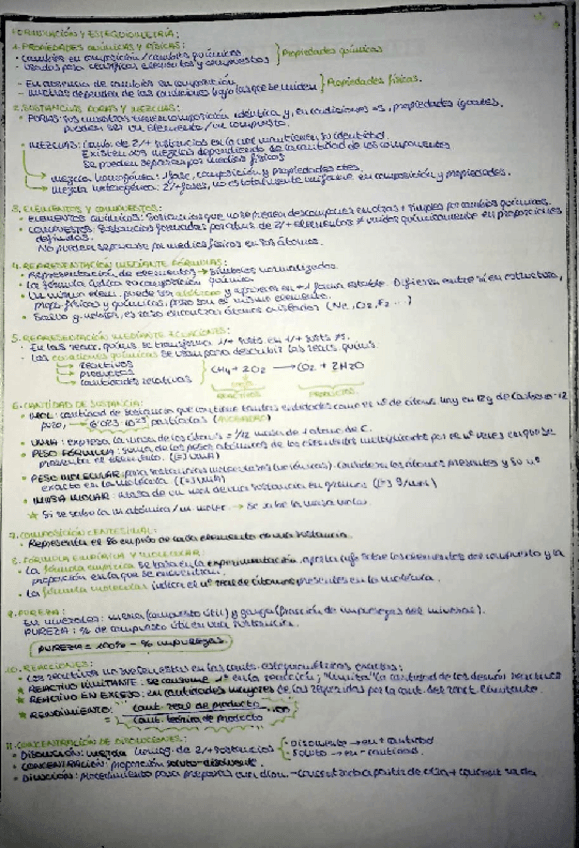 FORMULACIÓN Y ESTEQUIOMETRÍA:
1. PROPIEDADES QUÍMICAS Y FÍSICAS:
• cambios en composición / cambios químicos
- usadas para clasificar elementos y compuestos } Propiedades químicas
- En ausencia de cambios en composición.
- medidas dependen de las condiciones bajo las que se miden } Propiedades físicas.
2. SUSTANCIAS PURAS Y MEZCLAS:
• PURAS: sus muestras tienen composición idéntica y, en condiciones =s, propiedades iguales,
pueden ser un elemento / un compuesto.
• MEZCLAS: comb. de 2/+ sustancias en la que mantienen su identidad.
Existen dos mezclas dependiendo de la cantidad de los componentes
Se pueden separar por medios físicos
→ mezcla homogénea: 1 fase, composición y propiedades ctes.
→ mezcla heterogénea: 2/+ fases, no es totalmente uniforme en composición y propiedades.
3. ELEMENTOS Y COMPUESTOS:
• ELEMENTOS QUÍMICOS: sustancias que no se pueden descomponer en otras + simples por cambios químicos.
• COMPUESTOS: sustancias formadas por átomos de 2/+ elementos ≠ unidos químicamente en proporciones
definidas.
No pueden separarse por medios físicos en sus átomos.
4. REPRESENTACIÓN MEDIANTE FÓRMULAS:
• Representación de elementos → símbolos normalizados.
• La fórmula indica la composición química
• Un mismo elem. puede ser y aparecer en +1 forma estable. Difieren entre sí en estructura,
prop. físicas y químicas, pero son el mismo elemento.
• Salvo g. nobles, es raro encontrar átomos aislados (N2, O2, F2...)
5. REPRESENTACIÓN MEDIANTE ECUACIONES:
• En las reacc. quím. se transforma 1/+ susts. en 1/+ susts ≠s.
• Las ecuaciones químicas se usan para describir las reacs. quím.
→ reactivos
→ productos
→ cantidades relativas } CH4 + 2O2 → CO2 + 2H2O
REACTIVOS PRODUCTOS
6. CANTIDAD DE SUSTANCIA:
• MOL: cantidad de sustancia que contiene tantas entidades como el nº de átomos hay en 12g de carbono-12
puro, → 6'023·10²³ partículas (AVOGADRO)
• UMA: expresa la masa de los átomos = 1/12 masa de 1 átomo de C.
• PESO FÓRMULA: suma de los pesos atómicos de los elementos multiplicados por el nº veces en que se
presenta el elemento.
• PESO MOLECULAR: para sustancias moleculares (no iónicas). considera los átomos presentes y su nº
exacto en la molécula
• MASA MOLAR: masa de un mol de una sustancia en gramos
★ Si se sabe la m. atómica / m. molec. → se sabe la masa molar.
7. COMPOSICIÓN CENTESIMAL:
• Representa el % en peso de cada elemento de una sustancia.
8. FÓRMULA EMPÍRICA Y MOLECULAR:
• La fórmula empírica se basa en la experimentación, aporta info sobre los elementos del compuesto y la
proporción en la que se encuentran.
• La fórmula molecular indica el nº real de átomos presentes en la molécula.
9. PUREZA:
En minerales: mena (compuesto útil) y ganga (fracción de impurezas del mineral).
PUREZA: % de compuesto útil en una sustancia.
PUREZA = 100% - % impurezas
10. REACCIONES:
• Los reactivos no suelen estar en las cants. estequiométricas exactas:
★ REACTIVO LIMITANTE: se consume 1º en la reacción; "limita" la cantidad de los demás reactivos
★ REACTIVO EN EXCESO: en cantidades mayores de las requeridas por la cant. del react. limitante.
★ RENDIMIENTO: = cant. real de producto / cant. teórica de producto · 100
11. CONCENTRACIÓN DE DISOLUCIONES:
• DISOLUCIÓN: mezcla homog. de 2/+ sustancias { • Disolvente → en + cantidad
• Soluto → en - cantidad.
• CONCENTRACIÓN: proporción soluto-disolvente.
• DILUCIÓN: procedimiento para preparar una disol. - concentrada a partir de otra + concentrada